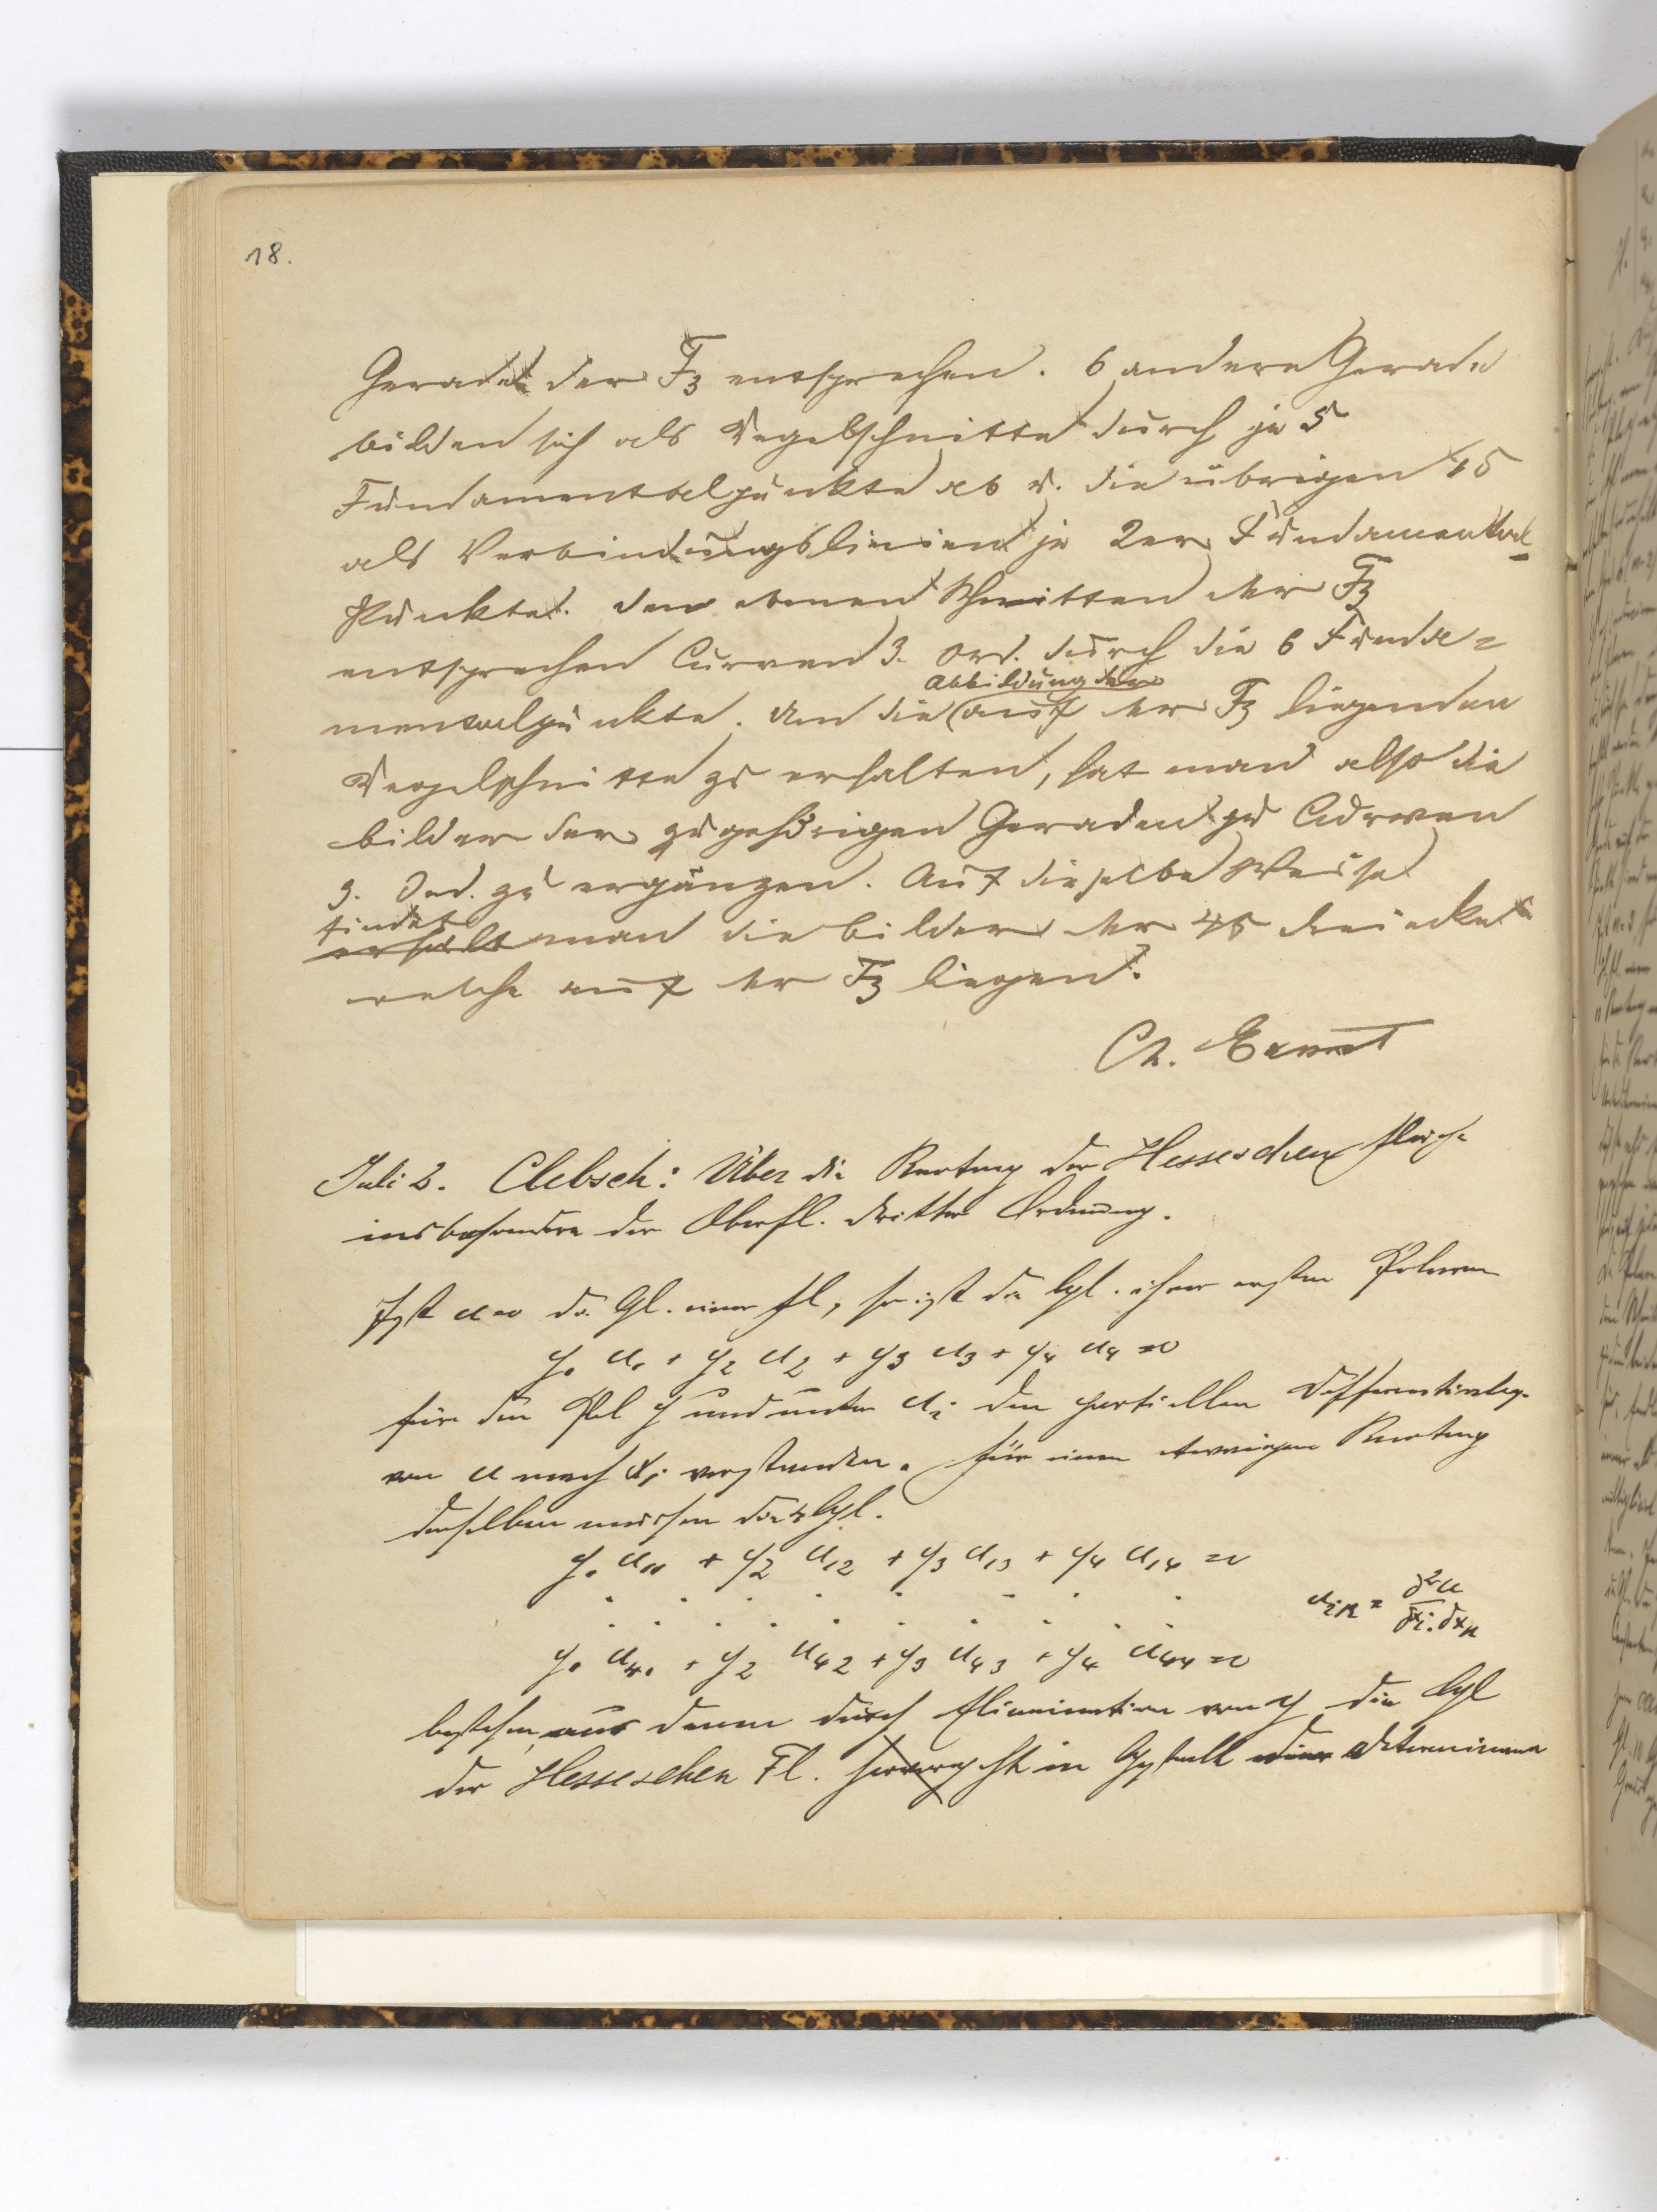 18.
Gerade der F₃ entsprechen. 6 andere Gerade
bilden sich als Kegelschnitte durch je 5
Fundamentalpunkte ab u. die übrigen 15
als Verbindungslinien je 2er Fundamental-
Punkte. den ebenen Schnitten der F₃
entsprechen Curven 3. Ord. durch die 6 Funda=
mentalpunkte. Um die (Abbildung der) auf der F₃ liegenden
Kegelschnitte zu erhalten, hat man also die
bilder der zugehörigen Geraden zu Curven
3. Ord. zu ergänzen. Auf dieselbe Weise
findet man die bilder der 45 dreiecke
welche auf der F₃ liegen.
Ch.
Juli 2. Clebsch: Über die Knoten der Hesseschen Fläche
insbesondere der Oberfl. dritter Ordnung.
Ist u=0 die Gl. einer Fl, so ist die Gl. ihrer ersten Polaren
y₁ u₁ + y₂ u₂ + y₃ u₃ + y₄ u₄ = 0
für den Pol y und unter uᵢ den partiellen Differentialq.
von u nach xᵢ verstanden. Für einen etwaigen Knoten
derselben müssen die 4 Gl.
y₁ u₁₁ + y₂ u₁₂ + y₃ u₁₃ + y₄ u₁₄ = 0
. . . . . . . . .
uᵢₖ = ∂²u / ∂xᵢ.∂xₖ
y₁ u₄₁ + y₂ u₄₂ + y₃ u₄₃ + y₄ u₄₄ = 0
bestehen, aus denen durch Elimination von y die Gl
der Hesseschen Fl. in Gestalt einer Determinante